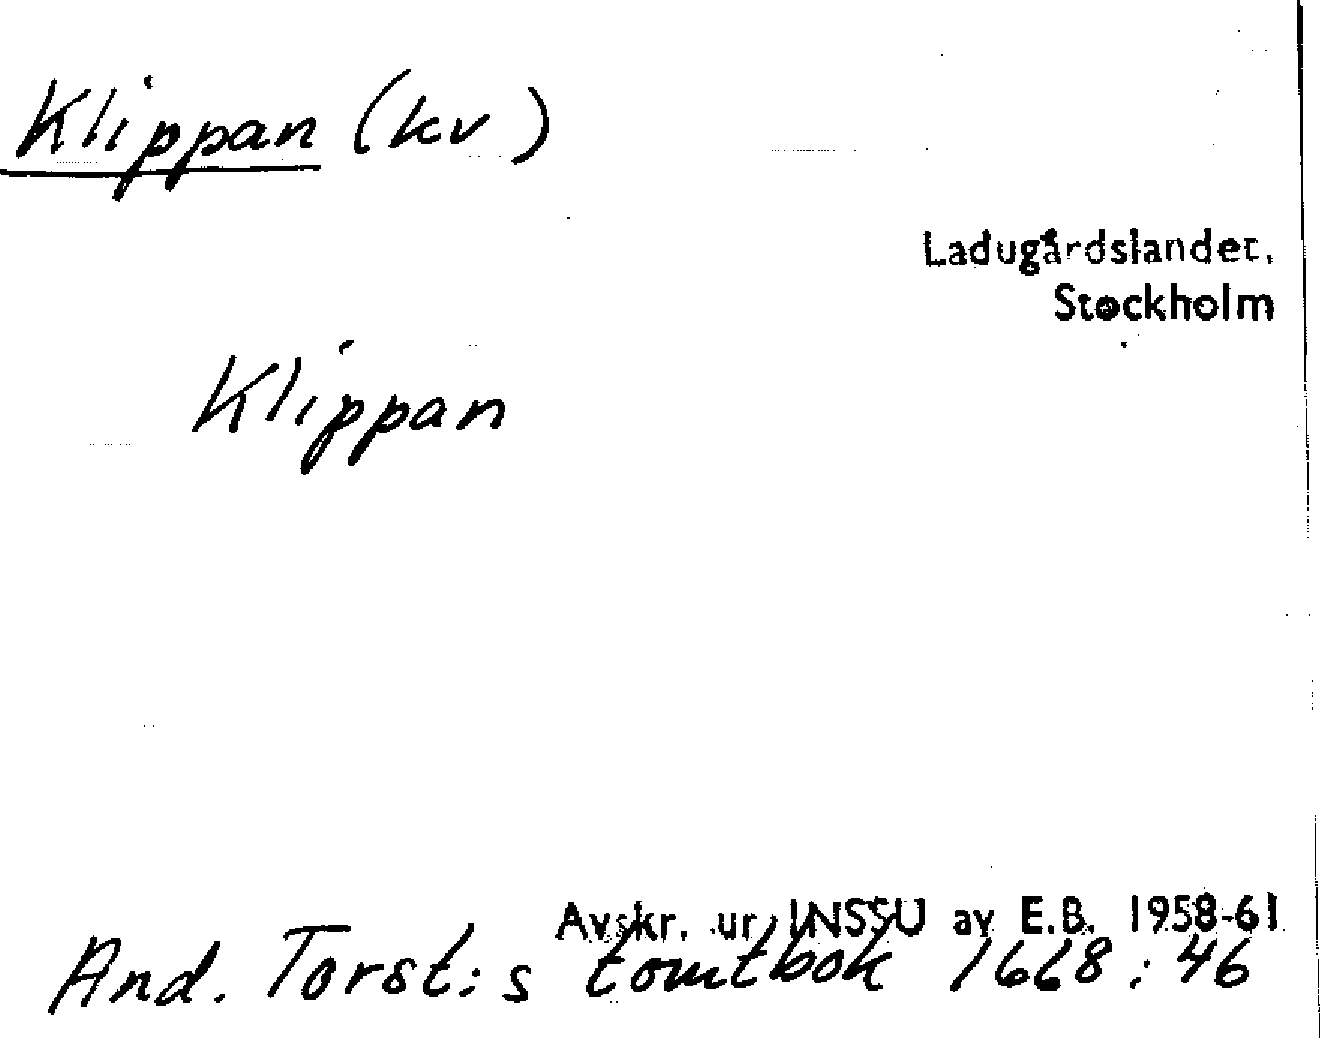 Klippan (kv)
Ladugårdslandet,
Stockholm
Klippan
Avskr. ur INSSU av E.B. 1958-61
And. Torst:s tomtbok 1668:46